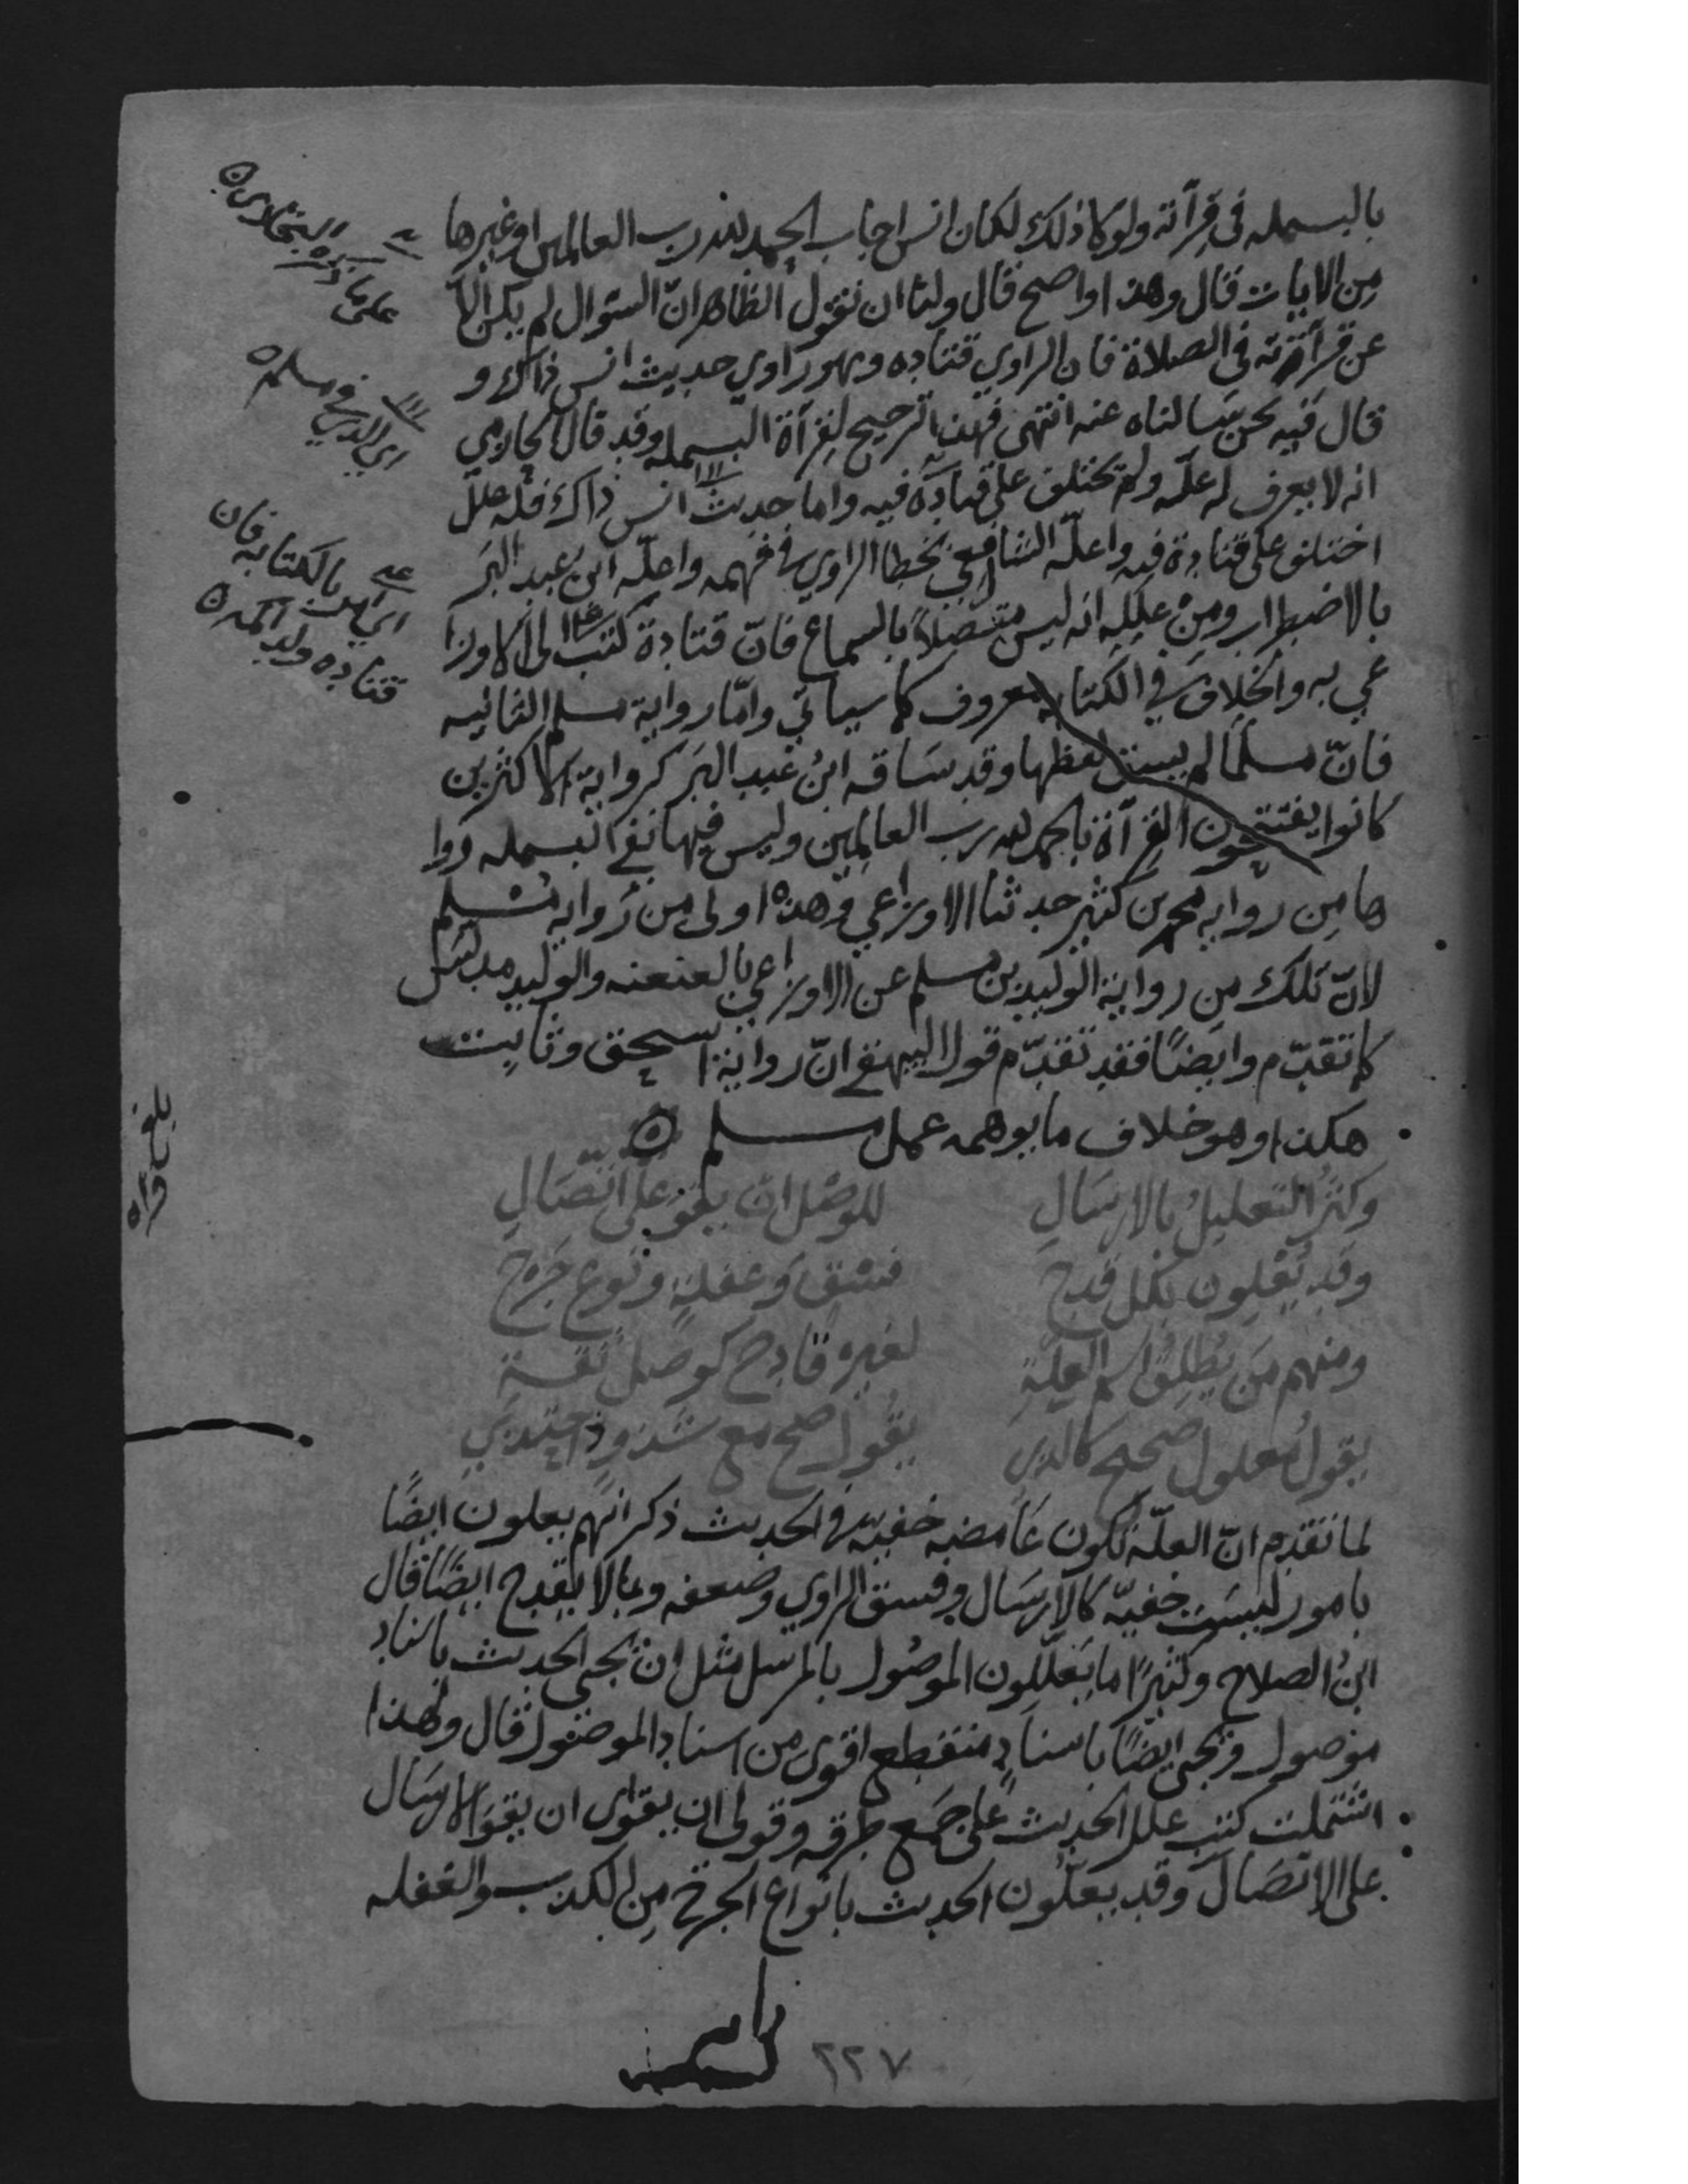 بالبسمله في قرآته ولو كا ذلك لكان انس اجاب الحمد لله رب العالمين او غيرها
من الايات قال وهذا واضح قال ولنا ان نقول الظاهر انّ السّوال لم يكن الّا
عن قرآته في الصلاة فان الراوي قتاده وهو راوي حديث انس ذاك و
قال فيه نحن سَالناه عنه انتهى فهذا ترجيح لقرآة البسمله وقد قال الحازمي
انه لا يعرف له علّه ولم يختلف على قتادة فيه واما حديث انس ذاك فله علل
اختلف على قتادة فيه واعلّه الشافعي بخطا الراوي في فهمه واعلّه ابن عبد البَر
بالاضطراب ومِنْ علله انه ليس متصلاً بالسماع فانّ قتادة كتب الى الاوزا
عي به والخلاف في الكتابه معروف كما سياتي وامّا رواية مسلم الثانيه
فانّ مسلمًا لم يسق لفظها وقد سَاقه ابنُ عبد البَر كرواية الاكثرين
كانوا يفتتحون القرآة بالحمد لله رب العالمين وليس فيها نفي البسمله روا
ها مِن روايه محمد بن كثير حدثنا الاوزاعي وهذه اولى من روايه مسلم
لانّ تلك من رواية الوليد بن مسلم عن الاوزاعي بالعنعنه والوليد مدلس
كما تقدّم وايضًا فقد تقدّم قول البيهقي انّ رواية اسحق وثابت
هكذا وهو خلاف ما يوهمه عمل مسلم ٥
وكثر التعليلُ بالارسَالِ للوصْل ان يقو على اتّصَالِ
وقد يُعِلون بكل قدح فسْقٍ وَغفلةٍ ونوع جَرْح
ومنهم مَن يُطلِقُ اسم العلّةِ لغيرِ قادح كوصل ثقة
يقولُ معلول صحيح كالذي يقُول صح مع شذوذ احتذي
لما تقدم انّ العلّة تكون غَامضه خفيّه في الحديث ذكر انهم يعلون ايضًا
بامور ليسَت خفيّه كالارسَال وفسق الراوي وضعفه وبما لا يقدح ايضًا قال
ابنُ الصلاح وكثيرًا ما يَعَلّلون الموصُول بالمرسل مثل ان يجي الحديث باسناد
موصول ويجي ايضًا باسنادٍ منقطع اقوى من اسناد الموصول قال ولهذا
اشتملت كتب علل الحديث على جَمع طرقه وقولي ان يقوى ان يقوَ الارسَال
على الاتصَال وقد يعلّون الحديث بانواع الجرح مِن الكذب والغفله
على ما ذكره البخاري ٥
اي الذي في مسلم ٥
اي امر بالكتابه فان
قتاده ولد اكمه ٥
بلغ قراه
٢٢٧